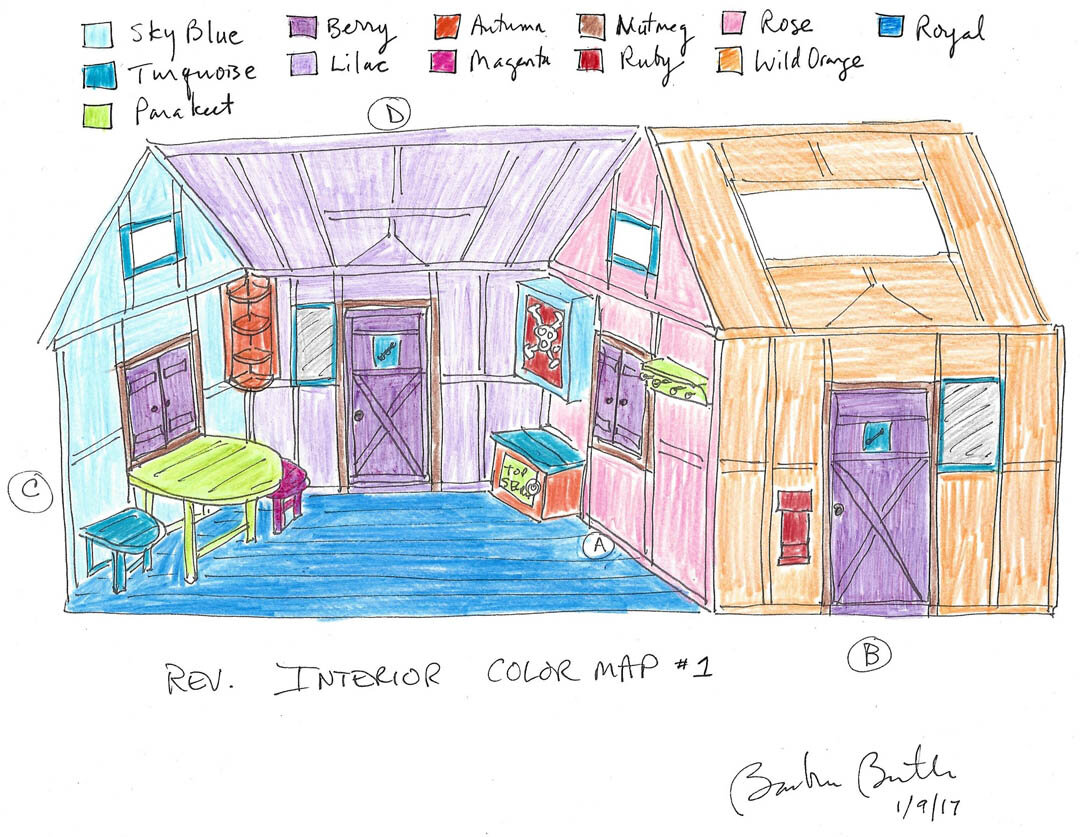 Sky Blue Berry Autumn Nutmeg Rose Royal
Turquoise Lilac Magenta Ruby Wild Orange
Parakeet
D
C
TOP
A
B
REV. INTERIOR COLOR MAP #1
1/9/17